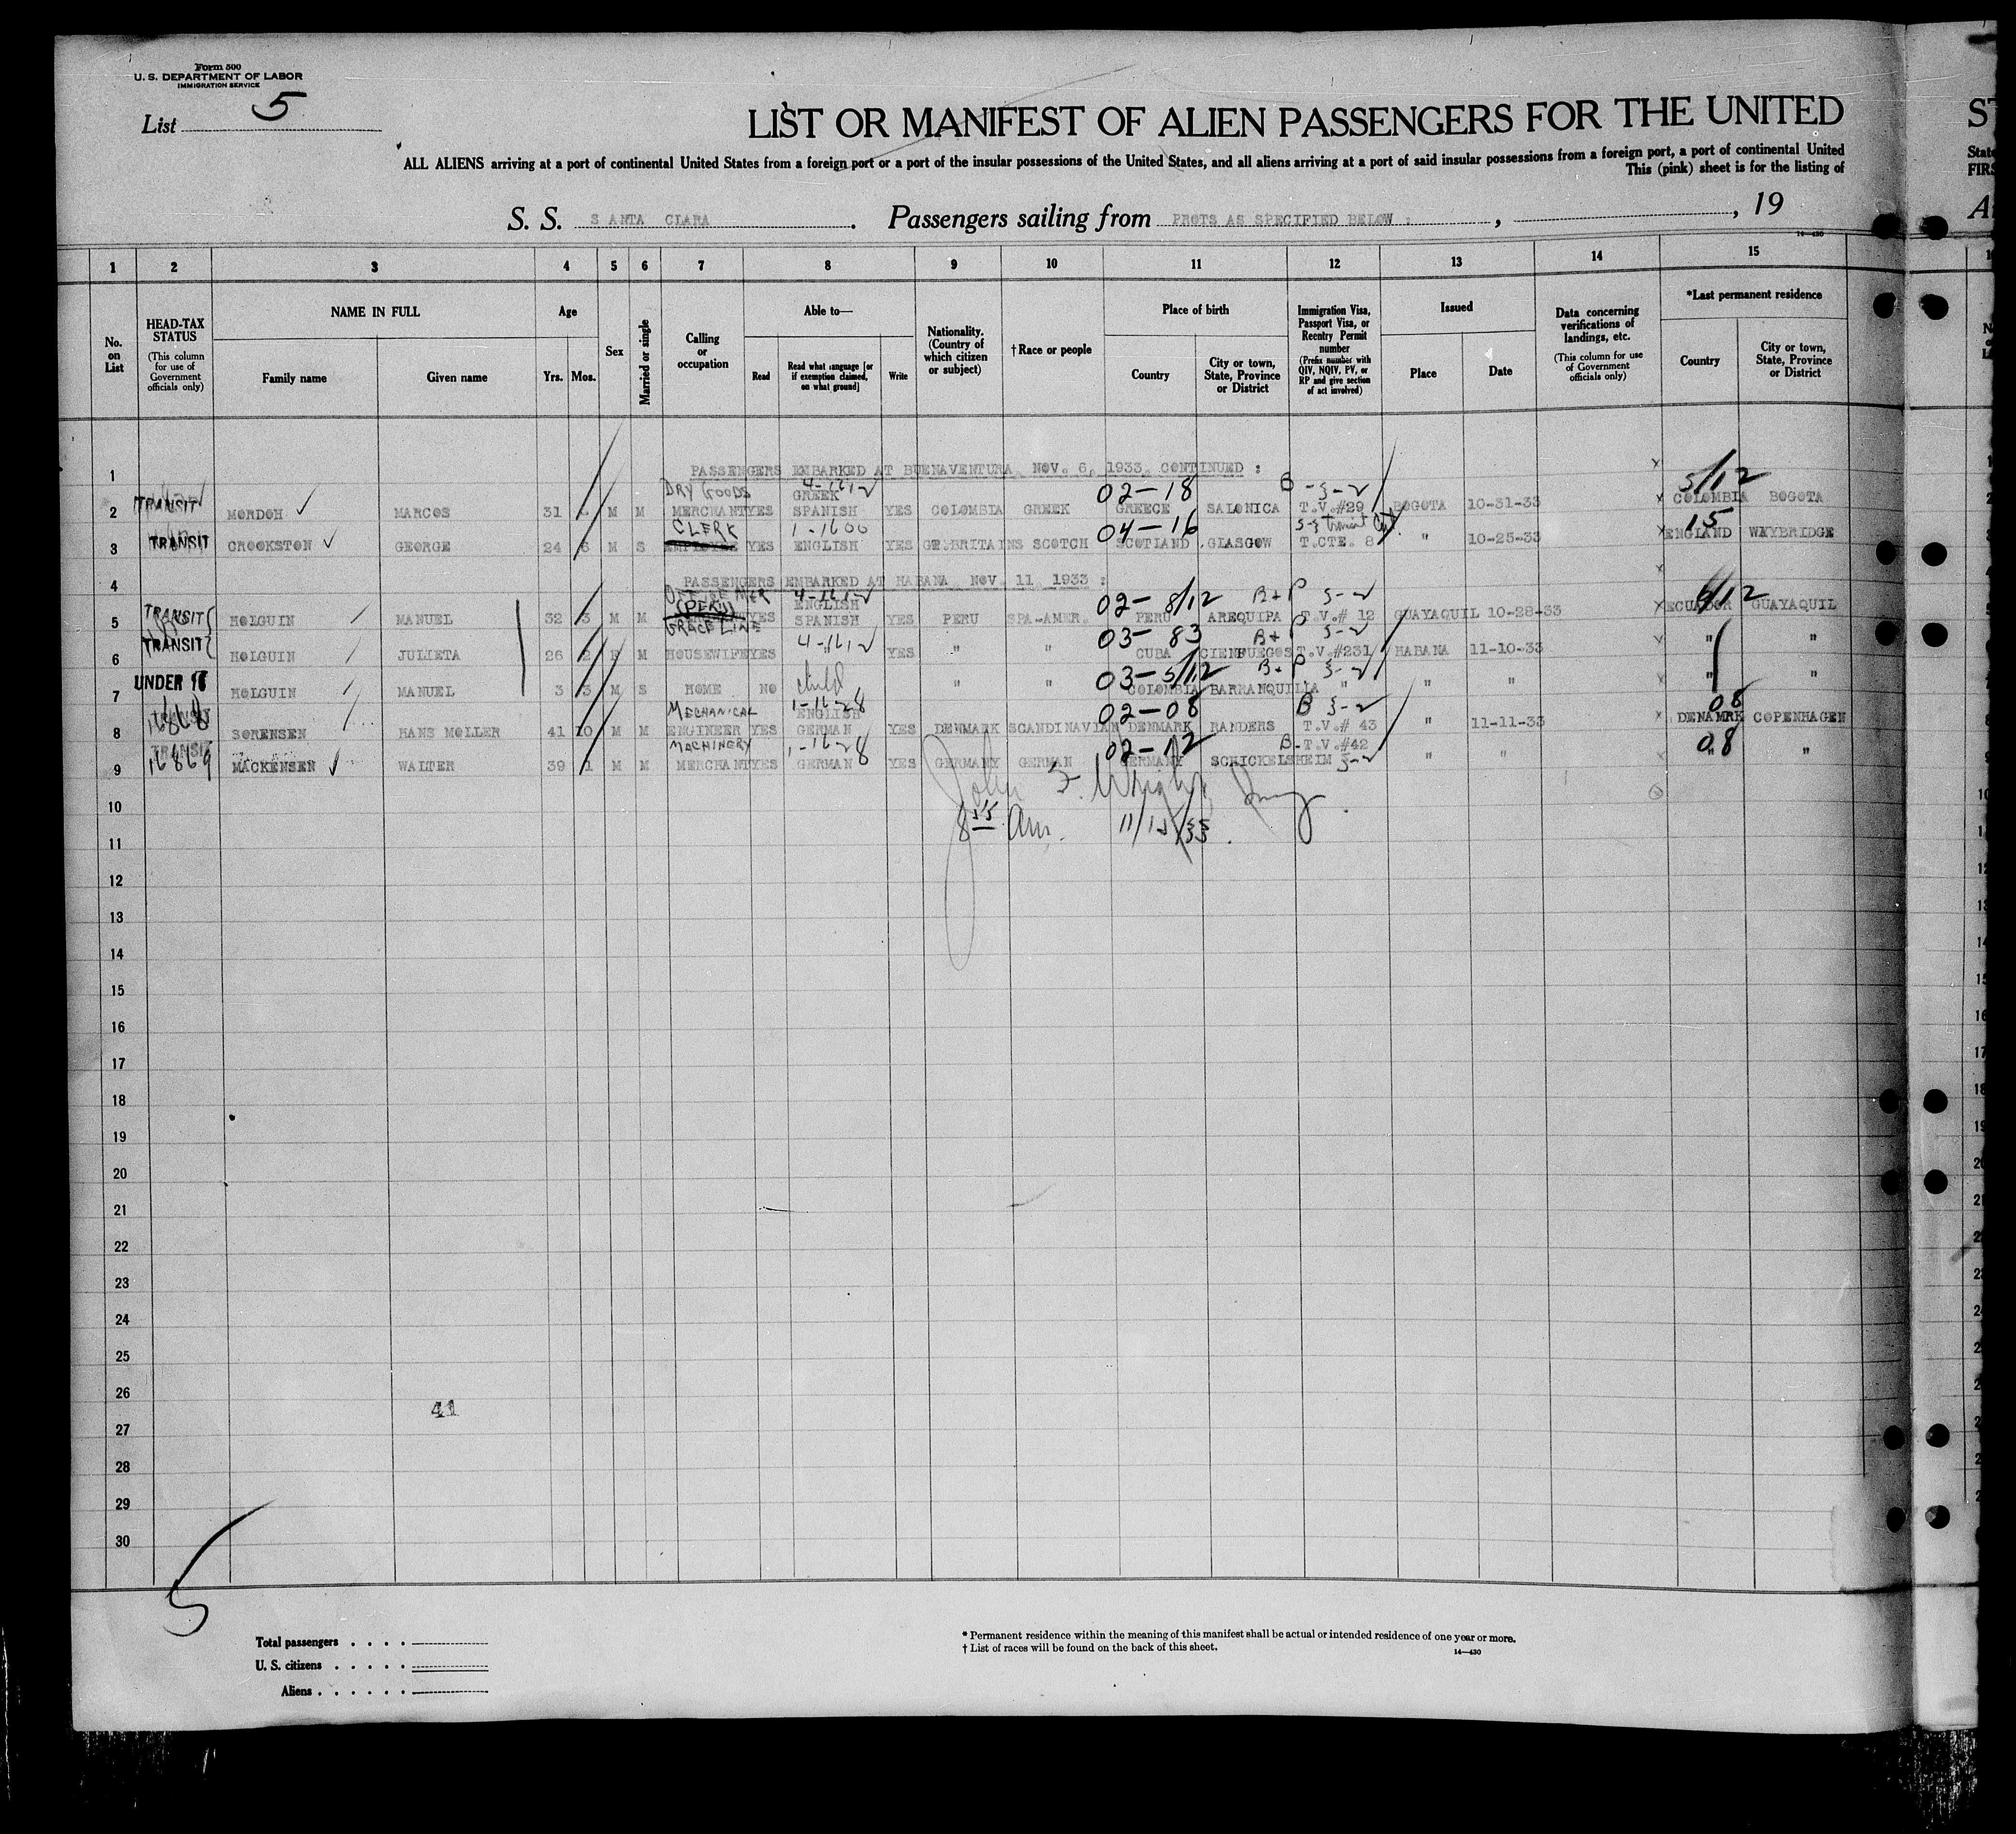 Form 500
U. S. DEPARTMENT OF LABOR
IMMIGRATION SERVICE
List 5
LIST OR MANIFEST OF ALIEN PASSENGERS FOR THE UNITED
ST
ALL ALIENS arriving at a port of continental United States from a foreign port or a port of the insular possessions of the United States, and all aliens arriving at a port of said insular possessions from a foreign port, a port of continental United
This (pink) sheet is for the listing of
S. S. S ANTA CLARA. Passengers sailing from PROTS AS SPECIFIED BELOW :, , 19
14—430
1 2 3 4 5 6 7 8 9 10 11 12 13 14 15
No. on List
HEAD-TAX STATUS (This column for use of Government officials only)
NAME IN FULL
Family name Given name
Age
Yrs. Mos.
Sex
Married or single
Calling or occupation
Able to—
Read Read what language [or if exemption claimed, on what ground] Write
Nationality. (Country of which citizen or subject)
†Race or people
Place of birth
Country City or town, State, Province or District
Immigration Visa, Passport Visa, or Reentry Permit number (Prefix number with QIV, NQIV, PV, or RP and give section of act involved)
Issued
Place Date
Data concerning verifications of landings, etc. (This column for use of Government officials only)
*Last permanent residence
Country City or town, State, Province or District
1 PASSENGERS EMBARKED AT BUENAVENTURA NOV. 6, 1933, CONTINUED :
DRY GOODS 4-1612 GREEK 02-18 B-3-2 5/12
2 TRANSIT MORDOH MARCOS 31 M M MERCHANT YES SPANISH YES COLOMBIA GREEK GREECE SALONICA T.V.#29 BOGOTA 10-31-33 COLOMBIA BOGOTA
CLERK 1-1600 04-16 15
3 TRANSIT CROOKSTON GEORGE 24 6 M S EMPLOYEE YES ENGLISH YES GT.BRITAINS SCOTCH SCOTLAND GLASGOW T.CTE. 8 " 10-25-33 ENGLAND WEYBRIDGE
4 PASSENGERS EMBARKED AT HABANA NOV. 11 1933 :
(PERU) 4-1612 ENGLISH 02-8/12 B+P 3-2 6/12
5 TRANSIT HOLGUIN MANUEL 32 3 M M YES SPANISH YES PERU SPA-AMER. PERU AREQUIPA T.V.# 12 GUAYAQUIL 10-28-33 ECUADOR GUAYAQUIL
GRACE LINE 4-1612 03-83 B+P 3-2
6 TRANSIT HOLGUIN JULIETA 26 2 F M HOUSEWIFE YES YES " " CUBA CIENFUEGOS T.V.#231 HABANA 11-10-33 " "
child 03-5/12 B+P 3-2
7 UNDER 16 HOLGUIN MANUEL 3 3 M S HOME NO " " COLOMBIA BARRANQUILLA " " " " "
MECHANICAL 1-1628 ENGLISH 02-08 B 3-2 08
8 16868 SORENSEN HANS MOLLER 41 10 M M ENGINEER YES GERMAN YES DENMARK SCANDINAVIAN DENMARK RANDERS T.V.# 43 " 11-11-33 DENAMRK COPENHAGEN
TRANSIT MACHINERY 1-1628 02-12 B-T.V.#42 08
9 16869 MACKENSEN WALTER 39 1 M M MERCHANT YES GERMAN YES GERMANY GERMAN GERMANY SCHICKELSHEIM 3-2 " " " "
John F. Wright
10
8 55 Am. 11/12/33.
11
12
13
14
15
16
17
18
19
20
21
22
23
24
25
26
41
27
28
29
30
5
Total passengers
U. S. citizens
Aliens
* Permanent residence within the meaning of this manifest shall be actual or intended residence of one year or more.
† List of races will be found on the back of this sheet.
14—430